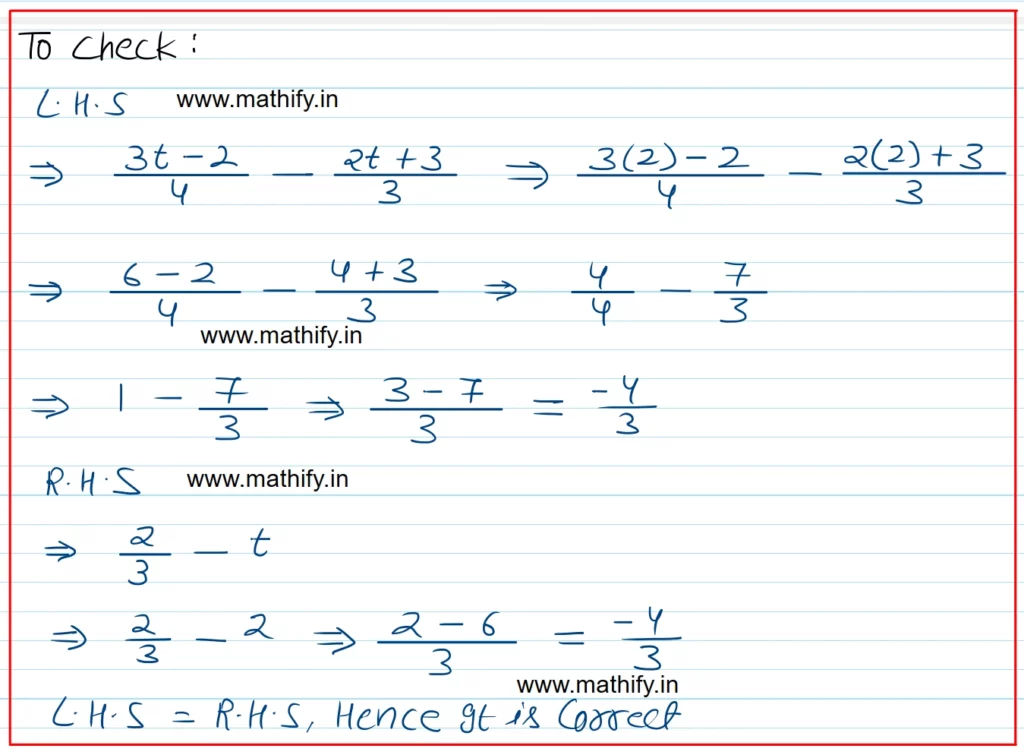 To Check :
L.H.S www.mathify.in
⇒ (3t - 2)/4 - (2t + 3)/3 ⇒ (3(2) - 2)/4 - (2(2) + 3)/3
⇒ (6 - 2)/4 - (4 + 3)/3 ⇒ 4/4 - 7/3
www.mathify.in
⇒ 1 - 7/3 ⇒ (3 - 7)/3 = -4/3
R.H.S www.mathify.in
⇒ 2/3 - t
⇒ 2/3 - 2 ⇒ (2 - 6)/3 = -4/3
www.mathify.in
L.H.S = R.H.S, Hence It is Correct